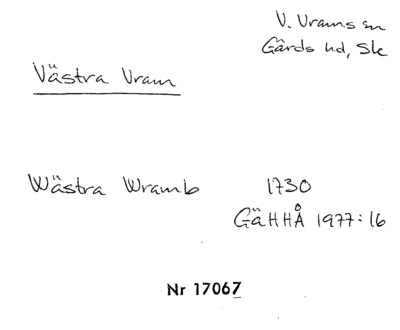 V. Vrams sn
Gärds hd, Sk
Västra Vram
Wästra Wramb 1730
GäHHÅ 1977:16
Nr 17067